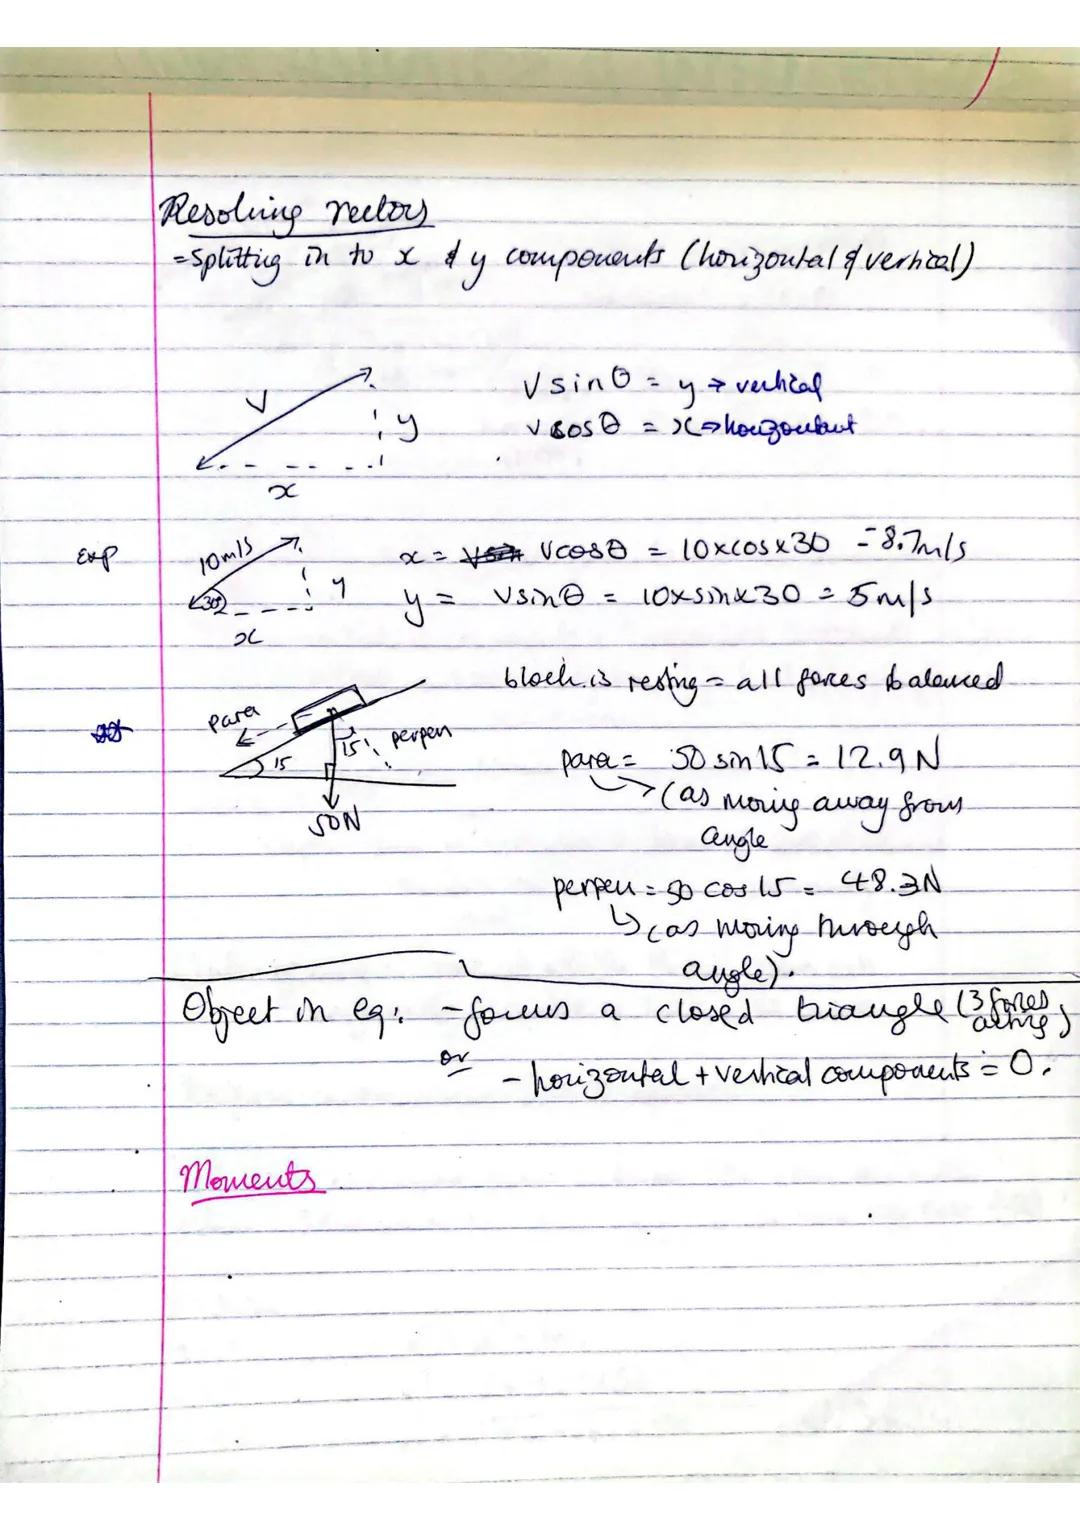 Resolving vectors
= splitting in to x & y components (horizontal & vertical)
V
y
x
V sin θ = y → vertical
v cos θ = x → horizontant
Exp
10m/s
30°
y
x
x = v cos θ = 10 x cos x 30 = 8.7m/s
y = v sin θ = 10 x sin x 30 = 5 m/s
block is resting = all forces balanced
para
perpen
15
15
50N
para = 50 sin 15 = 12.9 N
(as moving away from
angle
perpen = 50 cos 15 = 48.3N
(as moving through
angle).
Object in eq: - forms a closed triangle (3 forces
acting)
or
- horizontal + vertical components = 0.
Moments